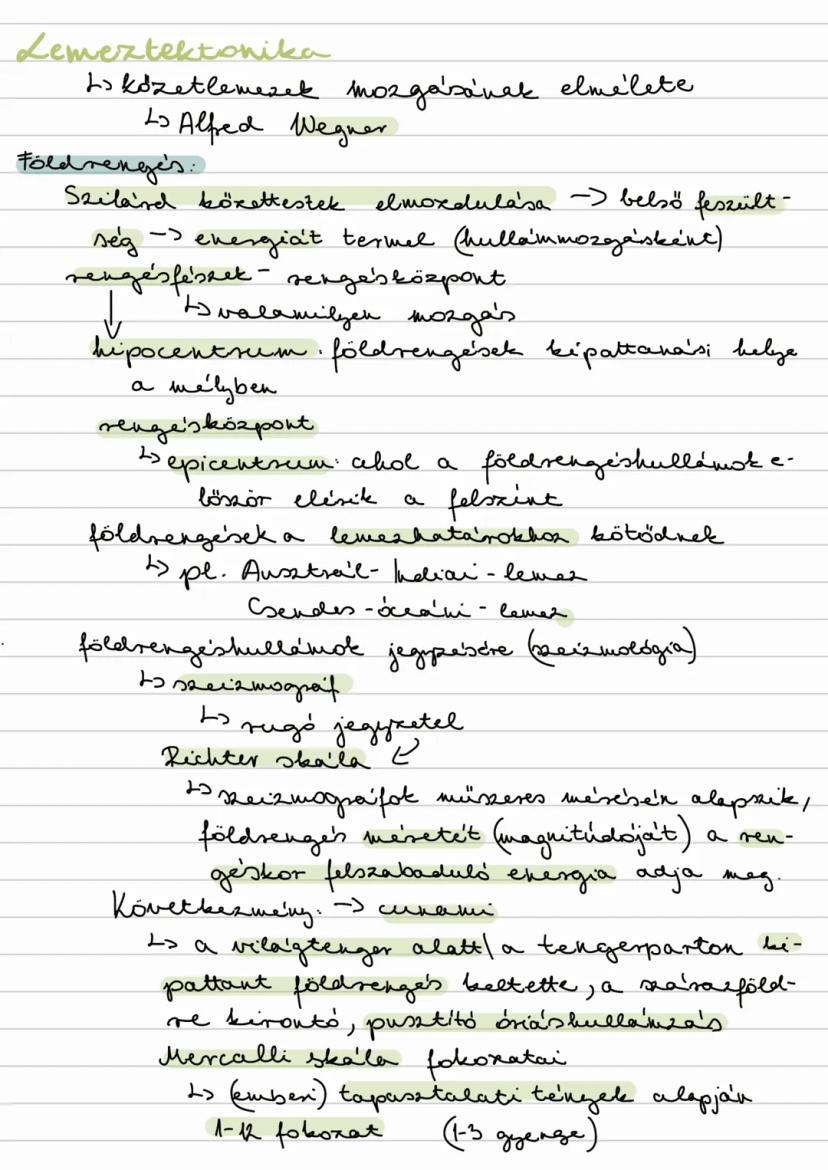 Lemeztektonika
↳ kőzetlemezek mozgásának elmélete
↳ Alfred Wegner
Földrengés:
Szilárd kőzettestek elmozdulása → belső feszült-
ség → energiát termel (hullámmozgásként)
rengésfészek - rengésközpont
↳ valamilyen mozgás
hipocentrum: földrengések kipattanási helye
a mélyben
rengésközpont
↳ epicentrum: ahol a földrengéshullámok e-
lőször elérik a felszínt
földrengések a lemezhatárokhoz kötődnek
↳ pl. Ausztrál- Indiai - lemez
Csendes - óceáni - lemez
földrengéshullámok jegyzésére (szeizmológia)
↳ szeizmográf
↳ rugó jegyzetel
Richter skála
↳ szeizmográfok műszeres mérésén alapszik,
földrengés méretét (magnitúdóját) a ren-
géskor felszabaduló energia adja meg.
Következmény: → cunami
↳ a világtenger alatt \ a tengerparton ki-
pattant földrengés keltette, a szárazföld-
re kirontó, pusztító óriáshullámzás
Mercalli skála fokozatai
↳ (emberi) tapasztalati tények alapján
1-12 fokozat (1-3 gyenge)